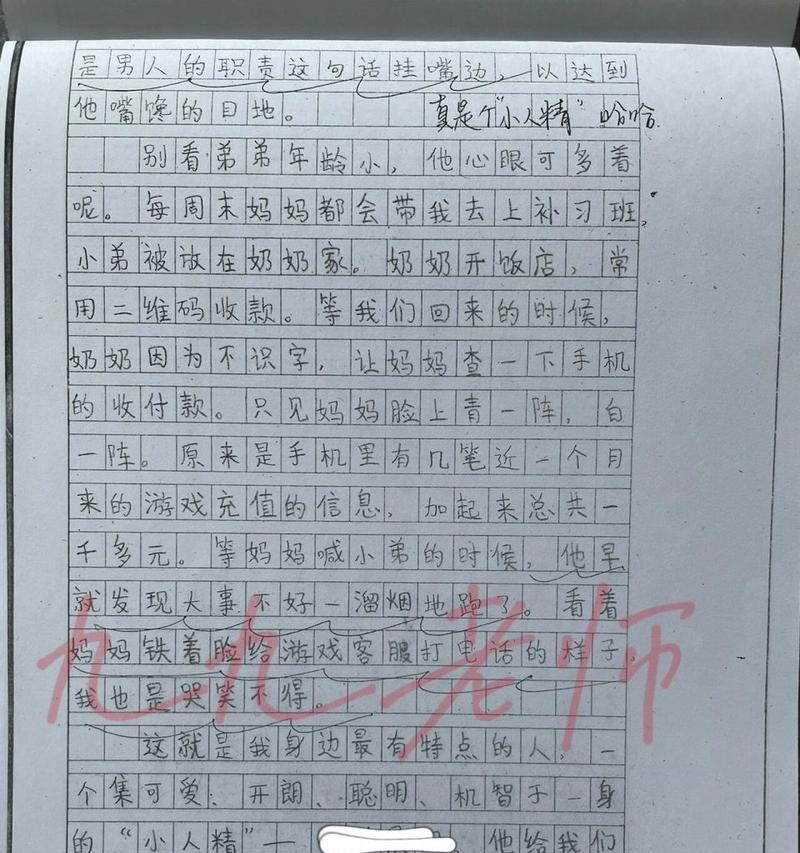 是男人的职责这句话挂嘴边，以达到
他嘴馋的目地。 真是个“小人精” 哈哈
别看弟弟年龄小，他心眼可多着
呢。每周末妈妈都会带我去上补习班，
小弟被放在奶奶家。奶奶开饭店，常
用二维码收款。等我们回来的时候，
奶奶因为不识字，让妈妈查一下手机
的收付款。只见妈妈脸上青一阵，白
一阵。原来是手机里有几笔近一个月
来的游戏充值的信息，加起来总共一
千多元。等妈妈喊小弟的时候，他早
就发现大事不好一溜烟地跑了。看着
妈妈铁着脸给游戏客服打电话的样子，
我也是哭笑不得。
九九老师
这就是我身边最有特点的人，一
个集可爱、开朗、聪明、机智于一身
的“小人精”一 他给我们